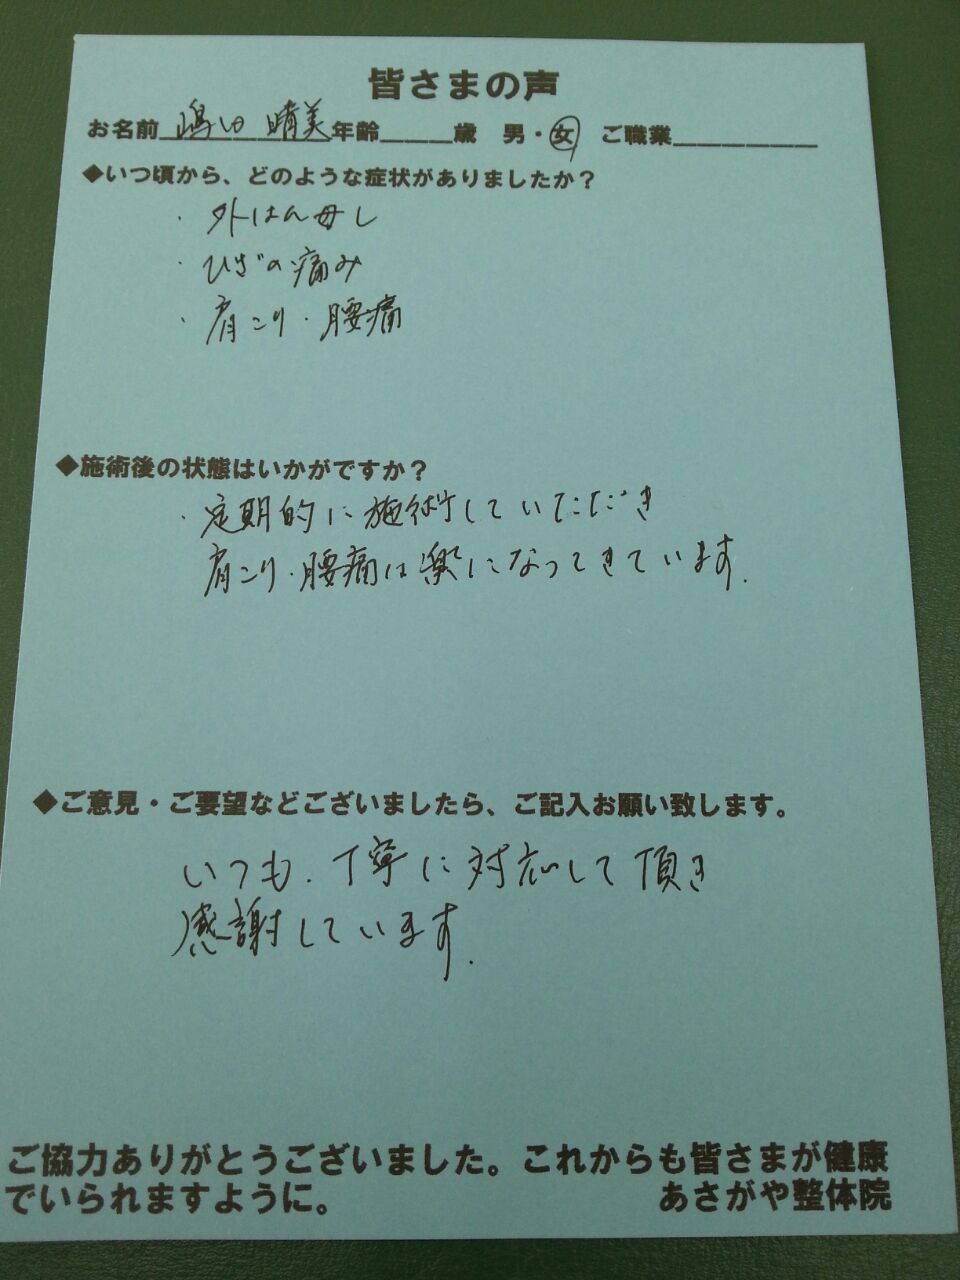 皆さまの声
お名前 嶋田 晴美 年齢____歳 男・女 ご職業________
◆いつ頃から、どのような症状がありましたか？
・外はん母し
・ひざの痛み
・肩こり・腰痛
◆施術後の状態はいかがですか？
・定期的に施術していただき
肩こり・腰痛は楽になってきています.
◆ご意見・ご要望などございましたら、ご記入お願い致します。
いつも、丁寧に対応して頂き
感謝しています.
ご協力ありがとうございました。これからも皆さまが健康
でいられますように。 あさがや整体院